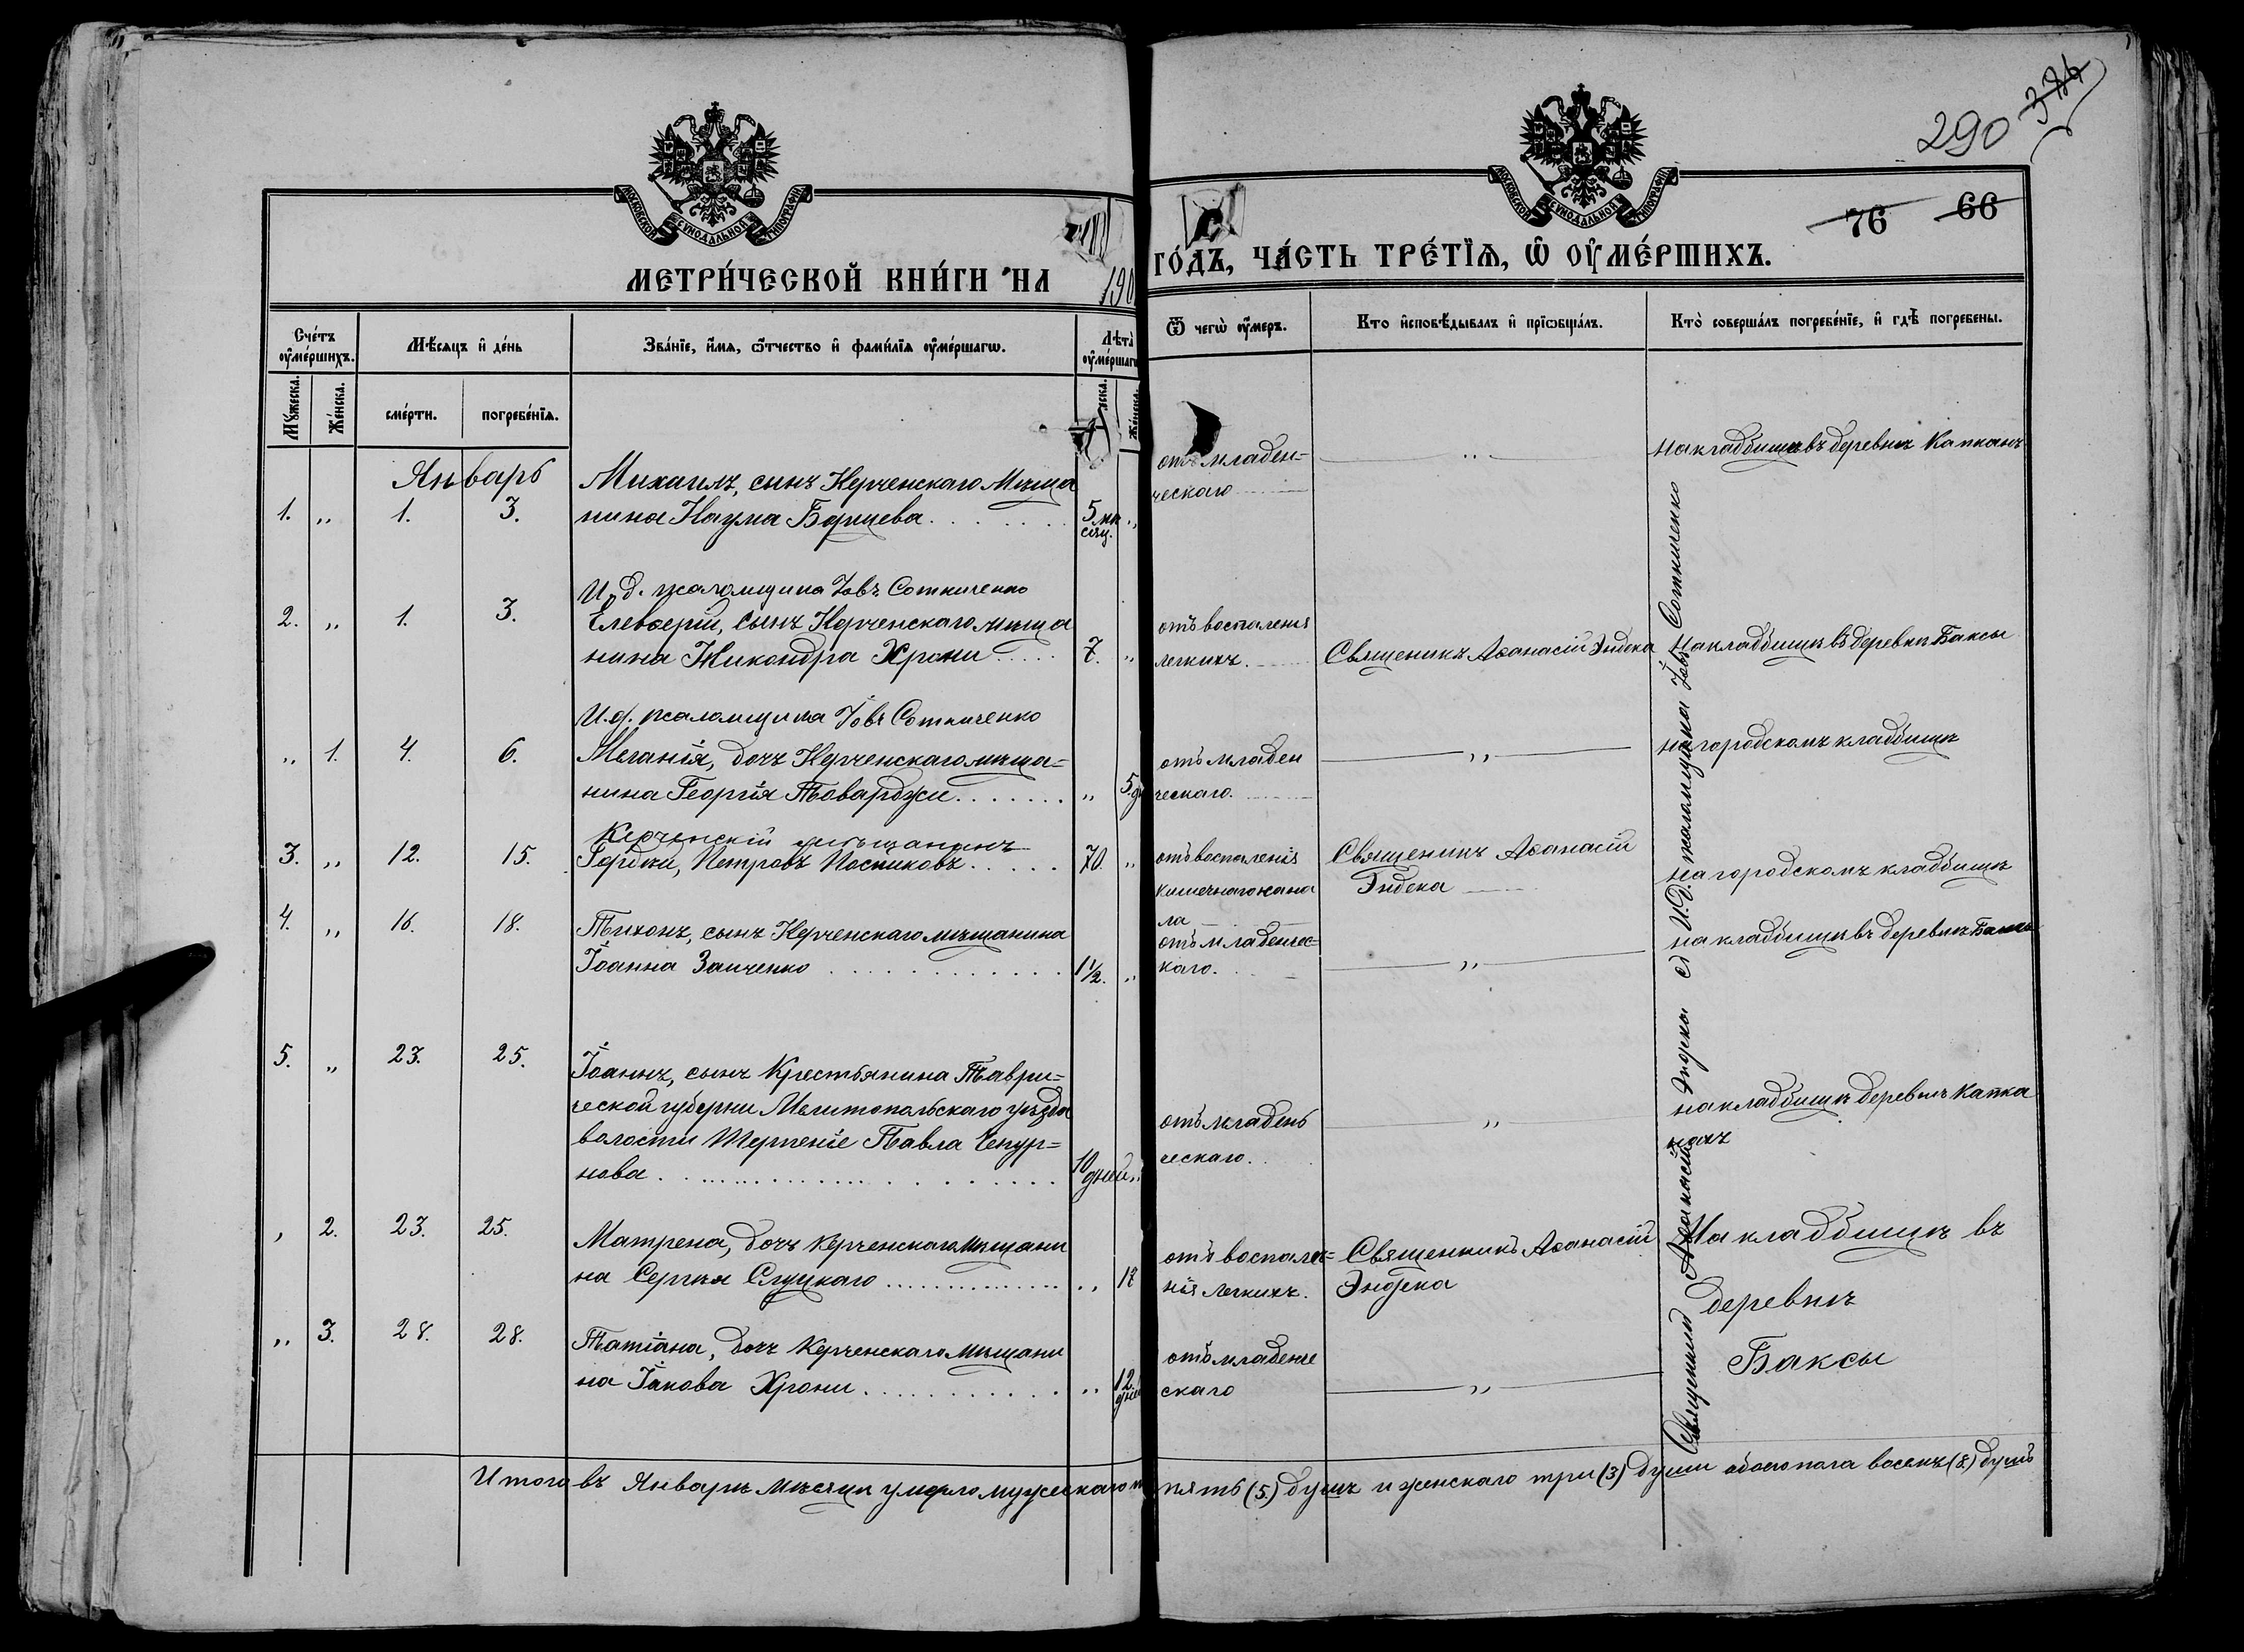 290
76 66
МОСКОВСКОЙ СѴНОДАЛЬНОЙ ТИПОГРАФІИ
МОСКОВСКОЙ СѴНОДАЛЬНОЙ ТИПОГРАФІИ
МЕТРИ́ЧЕСКОЙ КНИ́ГИ НА 190
ГО́ДЪ, ЧА́СТЬ ТРЕ́ТЇѦ, Ѡ ОУ҆МЕ́РШИХЪ.
Сче́тъ оу҆ме́ршихъ.
Мꙋ́жеска.
Же́нска.
Мѣ́сяцъ и҆ де́нь
сме́рти.
погребе́нїѧ.
Зва́нїе, и҆́мѧ, ѻ҆́тчество и҆ фами́лїѧ оу҆ме́ршагѡ.
Лѣта̀ оу҆ме́ршаг
еска.
Же́нска.
Ѿ чегѡ̀ оу҆́меръ.
Кто̀ и҆сповѣ́дывалъ и҆ прїѡбща́лъ.
Кто̀ соверша́лъ погребе́нїе, и҆ гдѣ̀ погребены.
Январь
1. „ 1. 3.
Михаилъ, сынъ Керченскаго Мѣща
нина Наума Борщева
5 мѣ
сяц.
отъ младен=
ческаго
на кладбищѣ въ деревнѣ Капканъ
И. д. псаломщика Іовъ Сотниченко
2. „ 1. 3.
Елевѳерій, сынъ Керченскаго мѣща
нина Никондра Хрони
7. „
отъ воспаленія
легкихъ.
Священикъ Аѳанасій Эндека
на кладбищѣ въ деревнѣ Баксы
И. д. псаломщика Іовъ Сотниченко
„ 1. 4. 6.
Меланія, дочь Керченскаго мѣща=
нина Георгія Товарджи
„ 5. д
отъ младен
ческаго.
на городскомъ кладбищѣ
Керченскій мѣщанинъ
3. „ 12. 15.
Гордѣй, Петровъ Посниковъ
70. „
отъ воспаленія
кишечнаго кана
ла
Священикъ Аѳанасій
Эндека
на городскомъ кладбищѣ
4. „ 16. 18.
Тихонъ, сынъ Керченскаго мѣщанина
Іоанна Заиченко
1½. „
отъ младенчес=
каго.
на кладбищѣ въ деревнѣ Баксы
5. „ 23. 25.
Іоаннъ, сынъ Крестьянина Таври=
ческой губерни Мелитопольскаго уѣзда
волости Терпеніе Павла Чепур=
нова
10
дней „
отъ младень
ческаго.
на кладбищѣ деревнѣ Капка
нахъ
„ 2. 23. 25.
Матрена, дочь Керченскаго Мѣщани
на Сергѣя Слуцкаго
„ 17
отъ воспале=
нія легкихъ.
Священникъ Аѳанасій
Эндека
На кладбищѣ въ
деревнѣ
Баксы
„ 3. 28. 28.
Татіана, дочь Керченскаго Мѣщани
на Іакова Хрони
„ 12.
дней
отъ младенче
скаго
Священникъ Аѳанасій Эндека съ И. Д. псаломщика Іовъ Сотниченко
Итого въ Январѣ мѣсяцѣ умерло мужескаго п пять (5.) душъ и женскаго три (3) души обоего пола восемь (8.) душъ